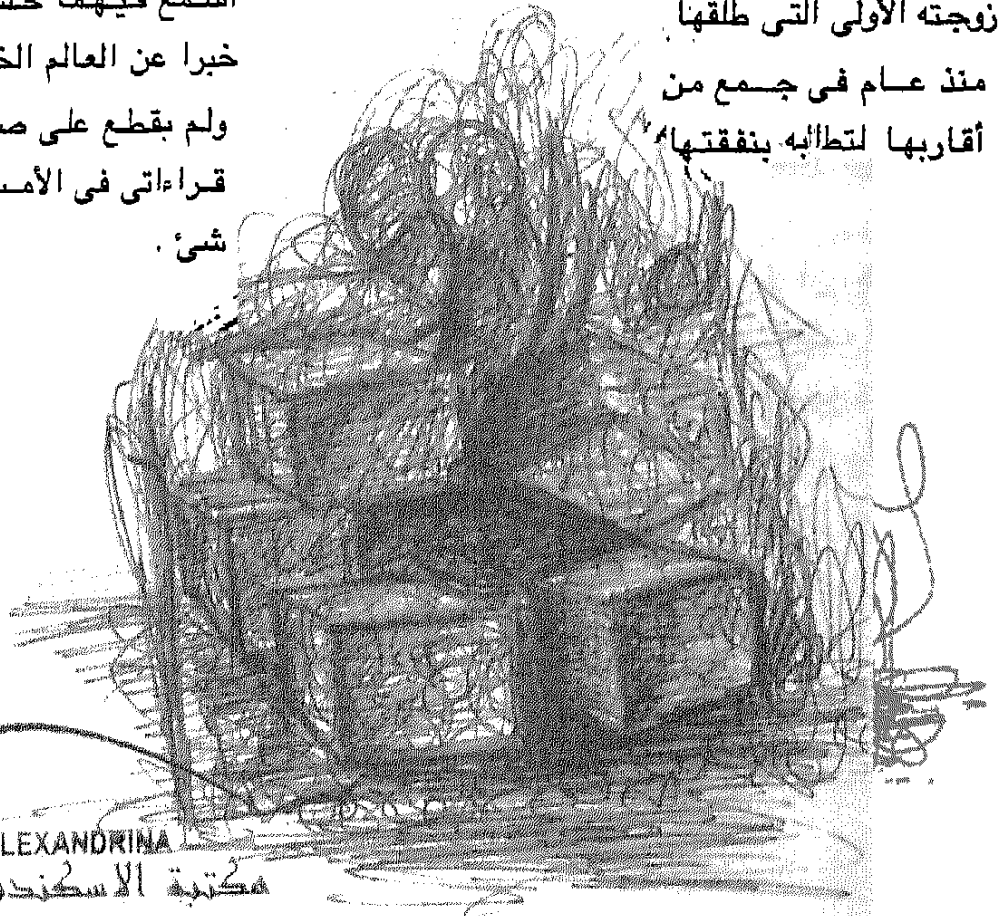 زوجته الأولى التى طلقها
منذ عــام فى جــمع من
أقاربها لتطالبه بنفقتها
خبرا عن العالم
ولم بقطع على
قراءاتى فى
شئ .
LEXANDRINA
مكتبة الاسكندر